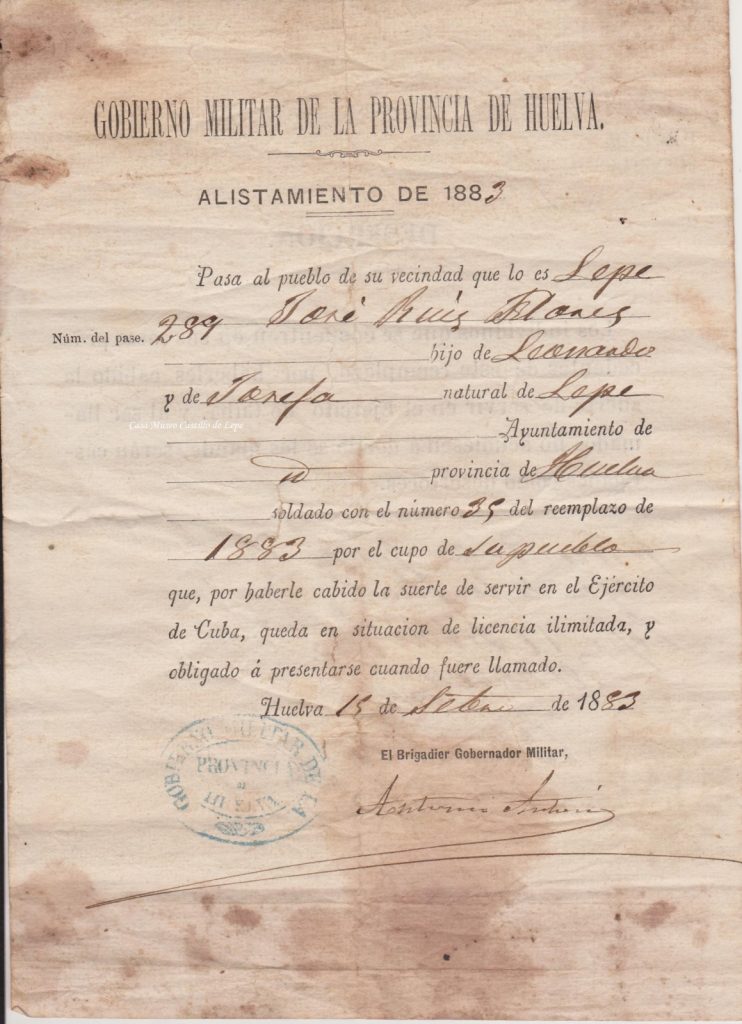 GOBIERNO MILITAR DE LA PROVINCIA DE HUELVA.
ALISTAMIENTO DE 1883
Pasa al pueblo de su vecindad que lo es Lepe
José Ruiz Flores
Núm. del pase. 289
hijo de Leonardo
y de Josefa natural de Lepe
Casa Museo Castillo de Lepe
Ayuntamiento de
id provincia de Huelva
soldado con el número 35 del reemplazo de
1883 por el cupo de su pueblo
que, por haberle cabido la suerte de servir en el Ejército
de Cuba, queda en situacion de licencia ilimitada, y
obligado á presentarse cuando fuere llamado.
Huelva 15 de Setbre de 1883
El Brigadier Gobernador Militar,
Antonio
GOBIERNO MILITAR DE LA
PROVINCIA
DE